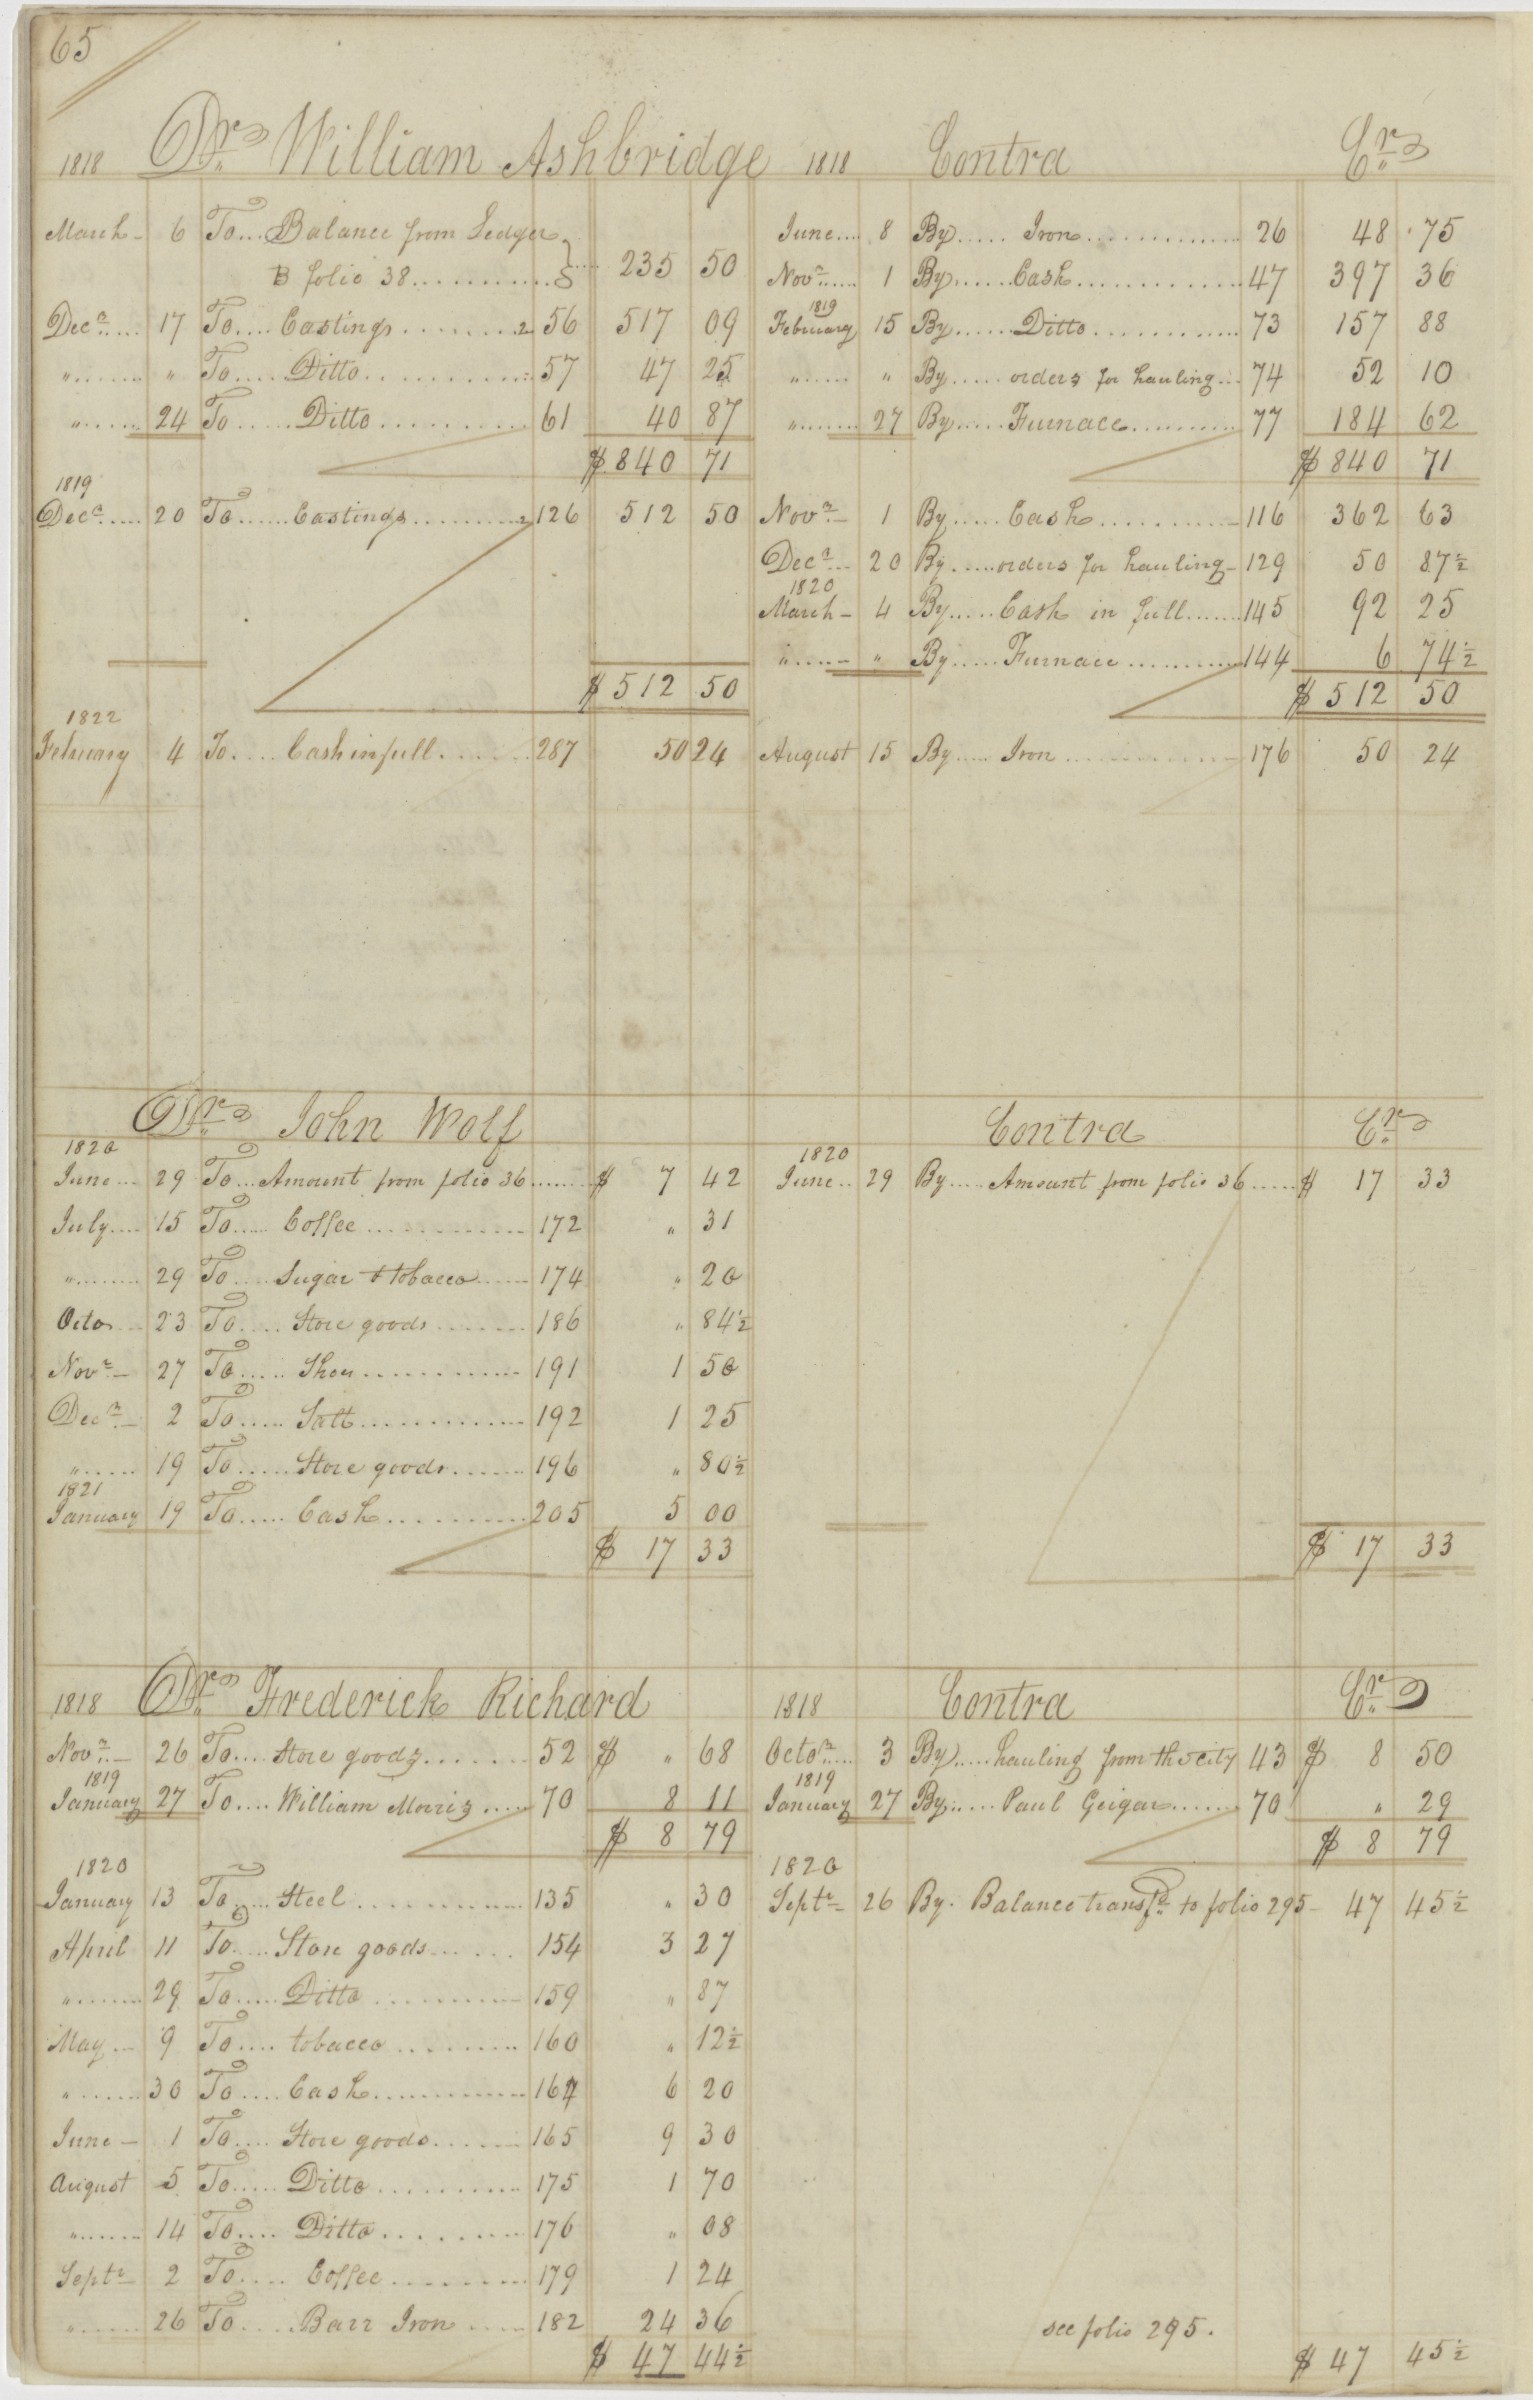 65
1818 Dr William Ashbridge 1818 Contra Cr
March 6 To... Balance from Ledger
B folio 38 ............ 235 50
Decr ..... 17 To.... Castings ........ 56 517 09
" ........ " To.... Ditto ............ 57 47 25
" ...... 24 To..... Ditto ........... 61 40 87
$ 840 71
1819
Decr ..... 20 To...... Castings ......... 126 512 50
$ 512 50
1822
February 4 To.... Cash in full ....... 287 50 24
June .... 8 By..... Iron ............. 26 48 75
Novr ...... 1 By...... Cash ............. 47 397 36
1819
February 15 By...... Ditto ............ 73 157 88
" ...... " By..... orders for hauling ... 74 52 10
" ....... 27 By..... Furnace .......... 77 184 62
$ 840 71
Novr 1 By..... Cash ........... 116 362 63
Decr ... 20 By..... orders for hauling 129 50 87½
1820
March 4 By..... Cash in full ...... 145 92 25
" ..... " By..... Furnace .......... 144 6 74½
$ 512 50
August 15 By..... Iron .............. 176 50 24
Dr John Wolf Contra Cr
1820
June ... 29 To... Amount from folio 36 ........ $ 7 42
July .... 15 To..... Coffee ............. 172 " 31
" ........ 29 To.... Sugar & tobacco ..... 174 " 20
Octo ... 23 To..... Store goods ........ 186 " 84½
Novr 27 To..... Shoes ............ 191 1 50
Decr 2 To..... Salt ............. 192 1 25
" ...... 19 To..... Store goods ....... 196 " 80½
1821
January 19 To..... Cash .......... 205 5 00
$ 17 33
1820
June .. 29 By.... Amount from folio 36 ..... $ 17 33
$ 17 33
1818 Dr Frederick Richard 1818 Contra Cr
Novr 26 To.... Store goods ....... 52 $ " 68
1819
January 27 To.... William Morris ..... 70 8 11
$ 8 79
1820
January 13 To..... Steel ............ 135 " 30
April 11 To..... Store goods ...... 154 3 27
" ........ 29 To..... Ditto ........... 159 " 87
May ... 9 To.... tobacco ......... 160 " 12½
" ...... 30 To.... Cash ............ 164 6 20
June 1 To.... Store goods ....... 165 9 30
August 5 To..... Ditto .......... 175 1 70
" ....... 14 To.... Ditto ......... 176 " 08
Septr 2 To.... Coffee ......... 179 1 24
" ...... 26 To.... Barr Iron ..... 182 24 36
$ 47 44½
Octor ..... 3 By.... hauling from the city 43 $ 8 50
1819
January 27 By...... Paul Geigar ....... 70 " 29
$ 8 79
1820
Septr 26 By. Balance transfd to folio 295 47 45½
see folio 295.
$ 47 45½